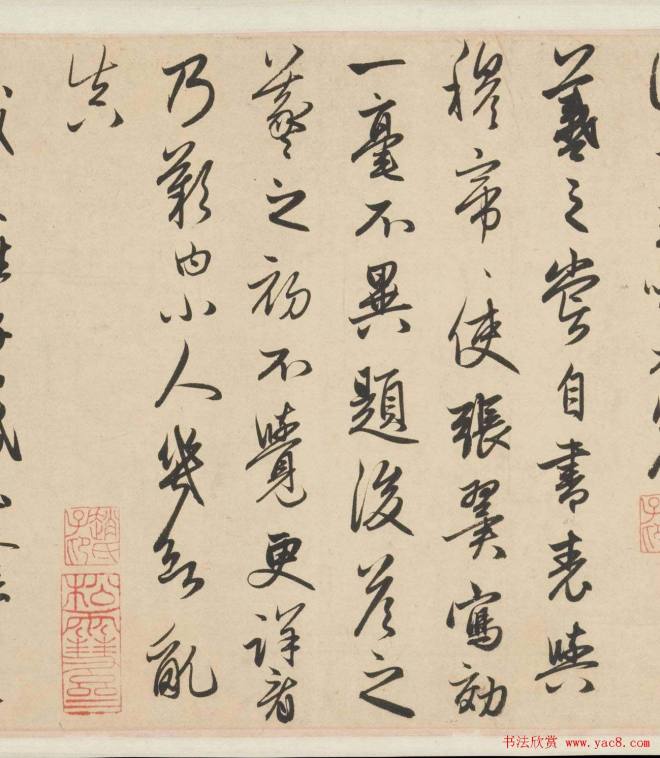 羲之嘗自書表與
穆帝〻使張翼寫効
一毫不異題後答之
羲之初不覺更詳看
乃歎曰小人幾欲亂
真
趙氏子昂
书法欣赏 www.yac8.com